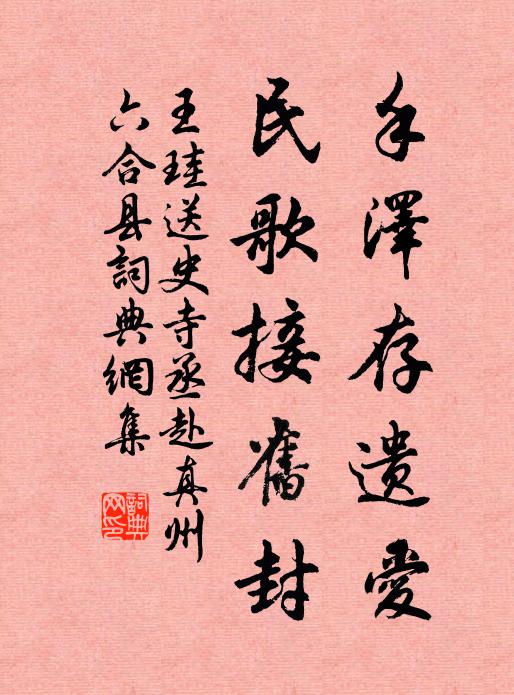 手澤存遺愛
民歌接舊封
王珪送史寺丞赴真州
六合县詞典網集
詞典
网印